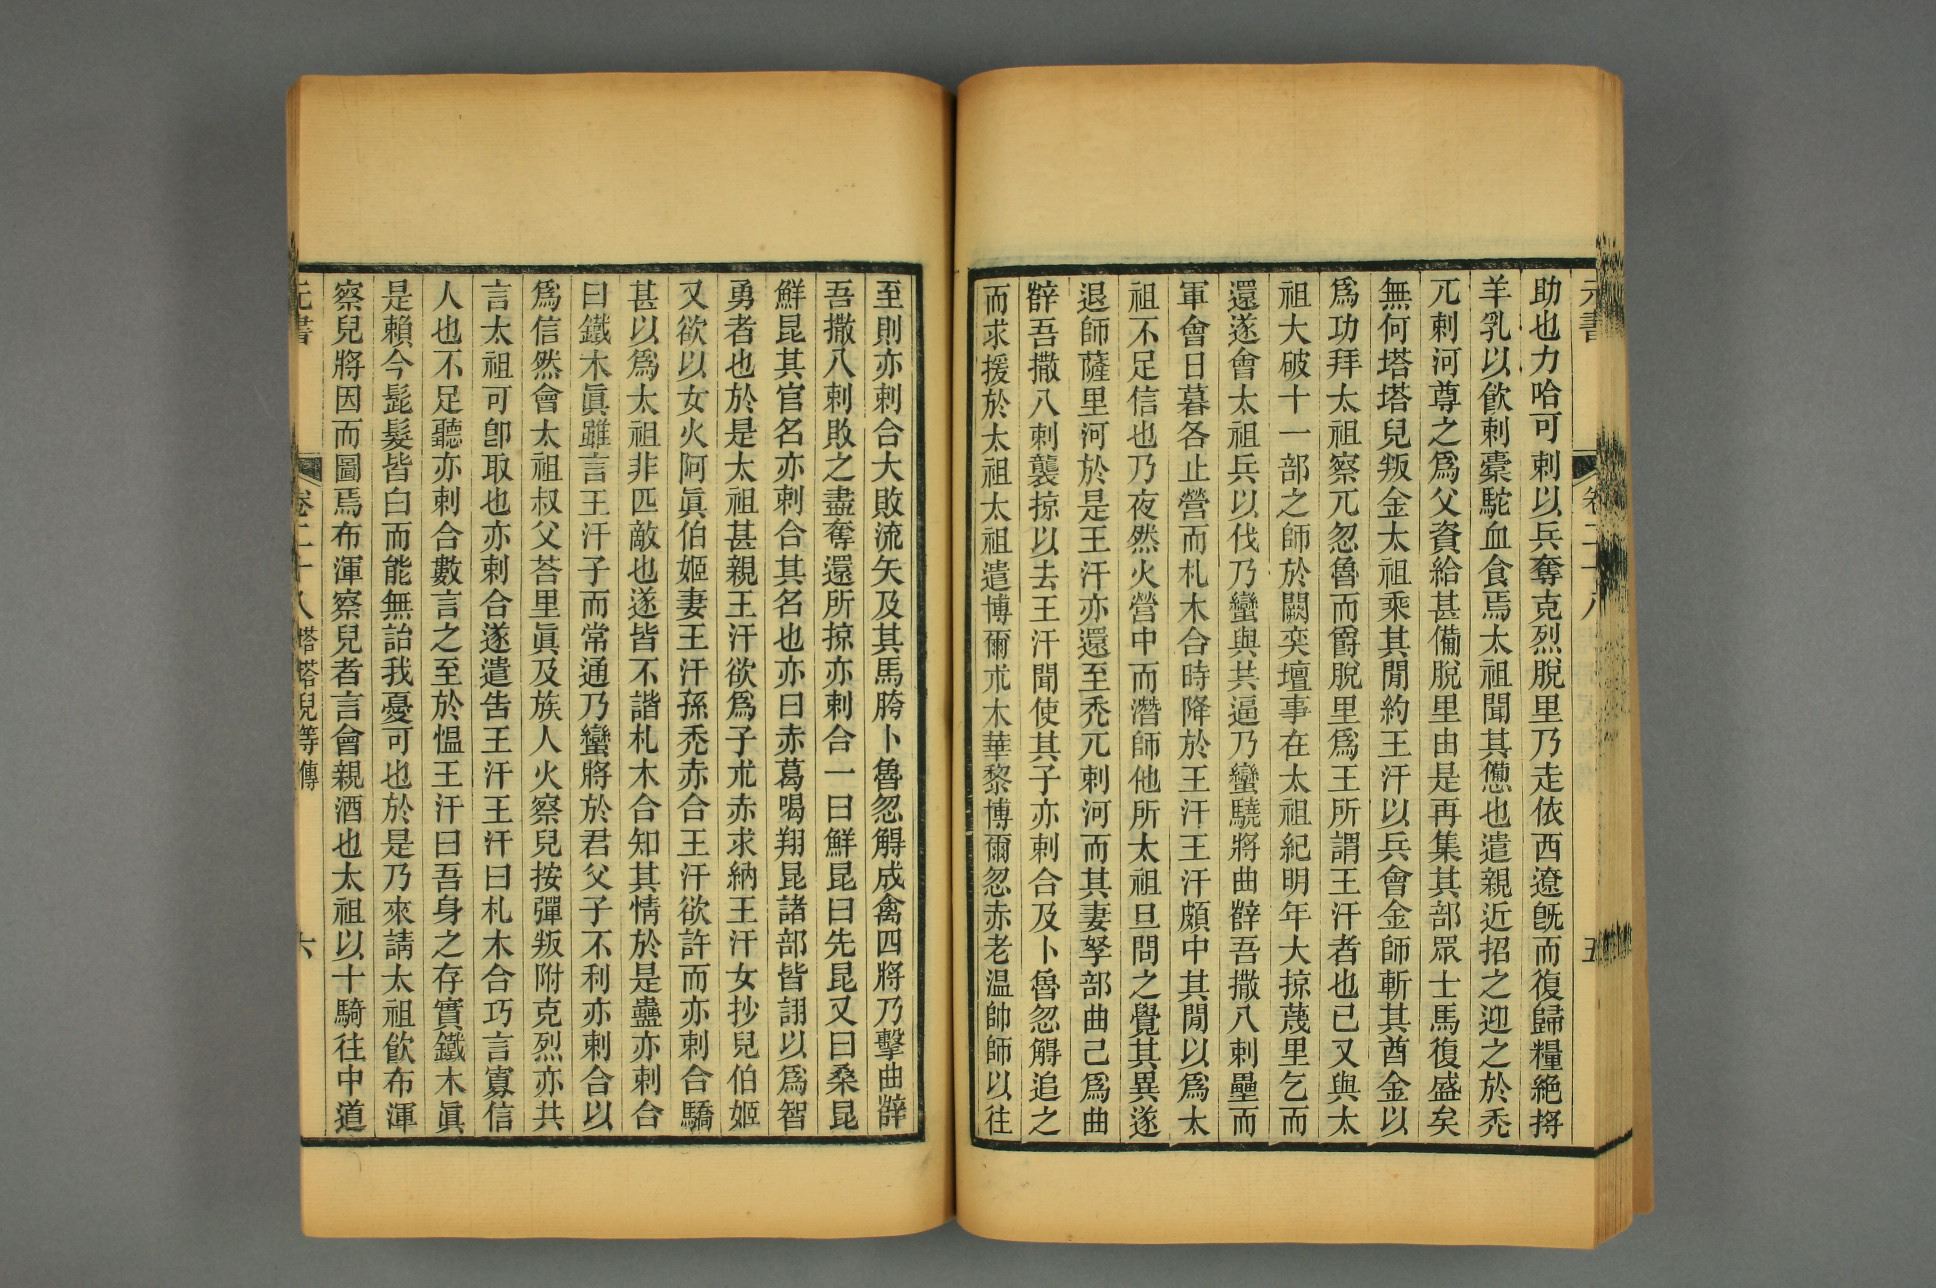 元書
卷二十八
五
助也力哈可剌以兵奪克烈脫里乃走依西遼旣而復歸糧絕捋
羊乳以飮刺橐駝血食焉太祖聞其憊也遣親近招之迎之於禿
兀剌河尊之爲父資給甚備脫里由是再集其部眾士馬復盛矣
無何塔塔兒叛金太祖乘其閒約王汗以兵會金師斬其酋金以
爲功拜太祖察兀忽魯而爵脫里爲王所謂王汗者也已又與太
祖大破十一部之師於闕奕壇事在太祖紀明年大掠蔑里乞而
還遂會太祖兵以伐乃蠻與共逼乃蠻驍將曲薛吾撒八剌壘而
軍會日暮各止營而札木合時降於王汗王汗頗中其閒以爲太
祖不足信也乃夜然火營中而潛師他所太祖旦問之覺其異遂
退師薩里河於是王汗亦還至禿兀剌河而其妻孥部曲己爲曲
薛吾撒八剌襲掠以去王汗聞使其子亦剌合及卜魯忽䚟追之
而求援於太祖太祖遣博爾朮木華黎博爾忽赤老温帥師以往
至則亦剌合大敗流矢及其馬胯卜魯忽䚟成禽四將乃擊曲薛
吾撒八剌敗之盡奪還所掠亦剌合一曰鮮昆曰先昆又曰桑昆
鮮昆其官名亦剌合其名也亦曰赤葛喝翔昆諸部皆詡以爲智
勇者也於是太祖甚親王汗欲爲子朮赤求納王汗女抄兒伯姬
又欲以女火阿眞伯姬妻王汗孫禿赤合王汗欲許而亦剌合驕
甚以爲太祖非匹敵也遂皆不諧札木合知其情於是蠱亦剌合
曰鐵木眞雖言王汗子而常通乃蠻將於君父子不利亦剌合以
爲信然會太祖叔父荅里眞及族人火察兒按彈叛附克烈亦共
言太祖可卽取也亦剌合遂遣告王汗王汗曰札木合巧言寡信
人也不足聽亦剌合數言之至於慍王汗曰吾身之存實鐵木眞
是賴今髭髮皆白而能無詒我憂可也於是乃來請太祖飮布渾
察兒將因而圖焉布渾察兒者言會親酒也太祖以十騎往中道
元書
卷二十八 塔塔兒等傳
六